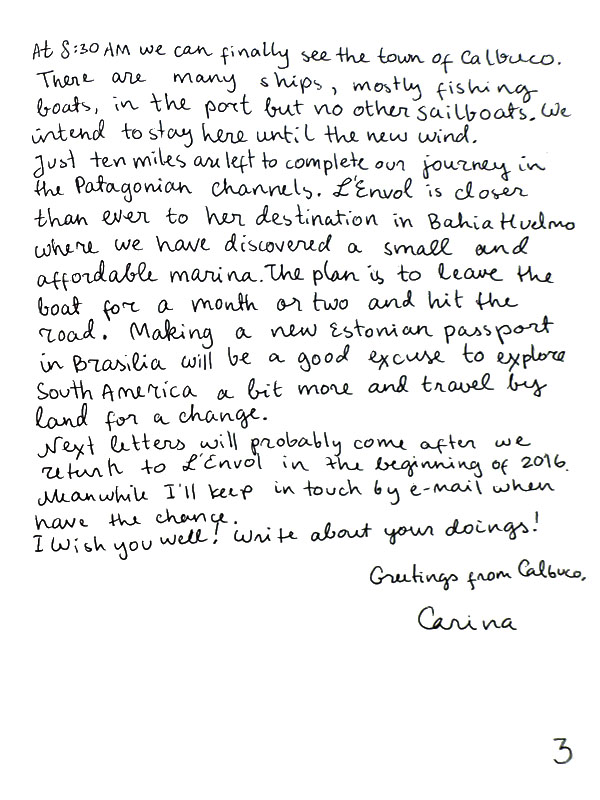 At 8:30 AM we can finally see the town of Calbuco.
There are many ships, mostly fishing
boats, in the port but no other sailboats. We
intend to stay here until the new wind.
Just ten miles are left to complete our journey in
the Patagonian channels. L'Envol is closer
than ever to her destination in Bahia Huelmo
where we have discovered a small and
affordable marina. The plan is to leave the
boat for a month or two and hit the
road. Making a new Estonian passport
in Brasilia will be a good excuse to explore
South America a bit more and travel by
land for a change.
Next letters will probably come after we
return to L'Envol in the beginning of 2016.
Meanwhile I'll keep in touch by e-mail when
have the chance.
I Wish you well! Write about your doings!
Greetings from Calbuco,
Carina
3